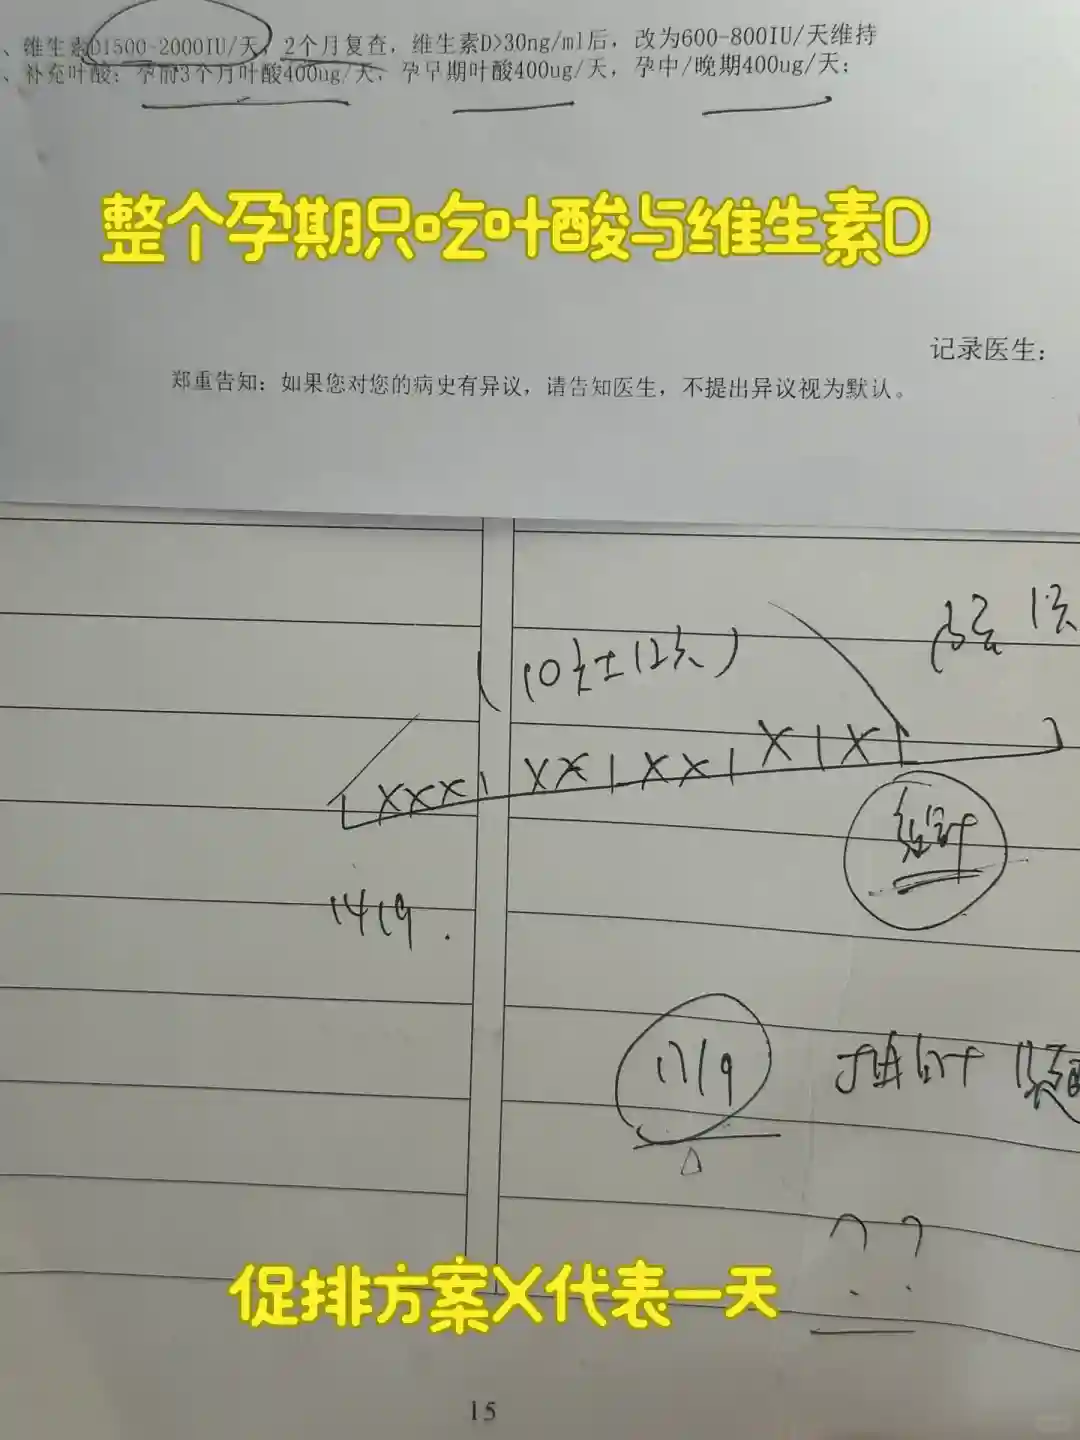 、维生素D1500-2000IU/天，2个月复查，维生素D>30ng/ml后，改为600-800IU/天维持
、补充叶酸：孕前3个月叶酸400ug/天，孕早期叶酸400ug/天，孕中/晚期400ug/天；
整个孕期只吃叶酸与维生素D
记录医生：
郑重告知：如果您对您的病史有异议，请告知医生，不提出异议视为默认。
(10天±12天)
XXX| XX|XX|X|X|
14/9.
17/9
? ?
促排方案X代表一天
15